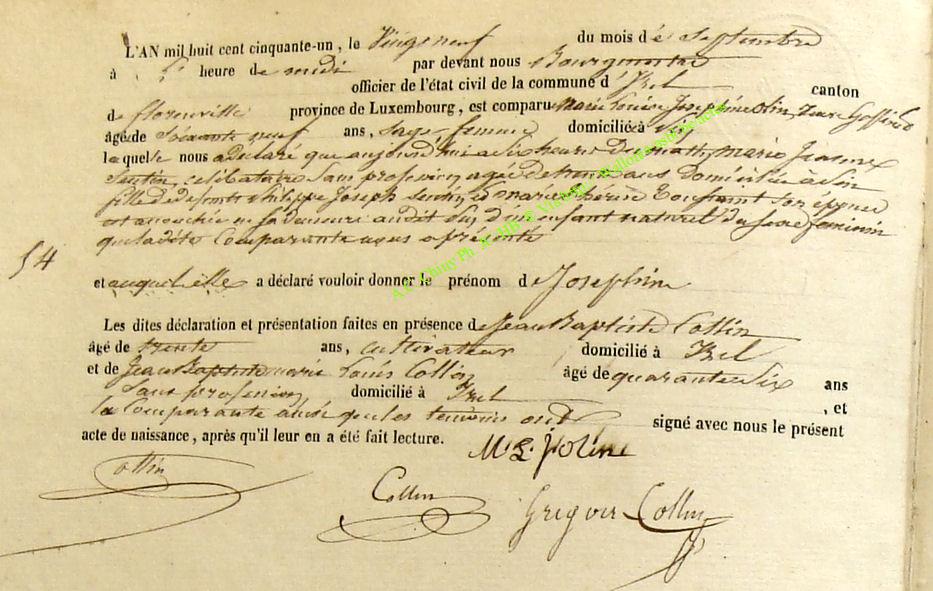 L'AN mil huit cent cinquante-un, le Vingt neuf du mois de Septembre
à heure de midi par devant nous Bourgmestre
officier de l'état civil de la commune d' Izel canton
de florenville province de Luxembourg, est comparu Marie Louise Josephine Olin,
âgée de Soixante neuf ans, Sage femme domicilié à
laquelle nous a Declaré que aujourd'hui a Six heures du matin, marie Jeanne
Sentin, célibataire Sans profession agée de trente ans Domiciliée à
fille de defunts Philippe Joseph et marie Toussaint Son epouse
est accouchée en Sa demeure audit d'un enfant naturel du Sexe feminin
que ladite Comparante nous a présenté
54
et auquel elle a déclaré vouloir donner le prénom de Josephine
Les dites déclaration et présentation faites en présence de Jean Baptiste Collin
âgé de trente ans, cultivateur domicilié à Izel
et de Louis Collin âgé de quarante Six ans
Sans profession, domicilié à Izel , et
la Comparante ainsi que les temoins ont signé avec nous le présent
acte de naissance, après qu'il leur en a été fait lecture.
M. L. J. Oline
Collin
Collin
Gregoir Collin